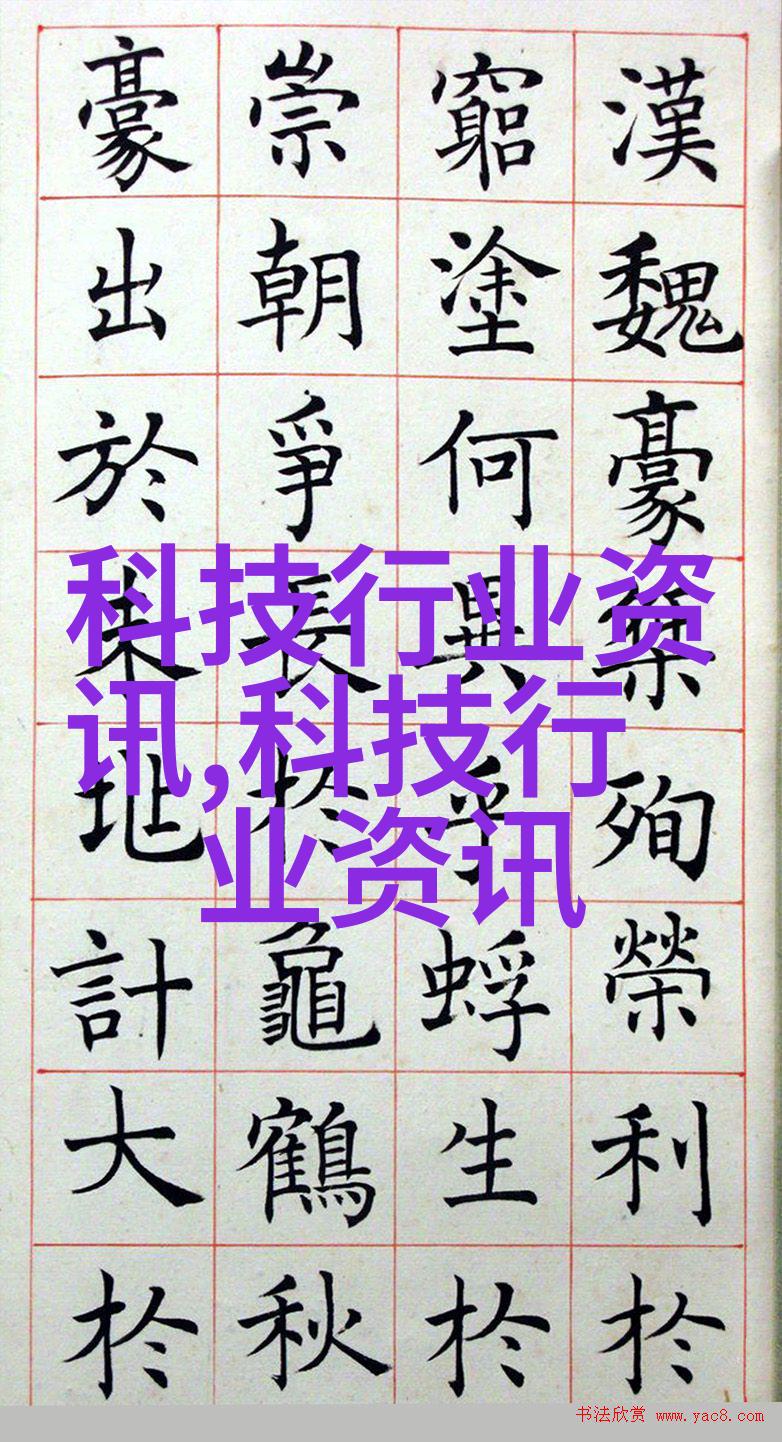 科技行业资
讯,科技行
业资讯
漢魏豪桀殉榮利於
窮塗何異乎蜉生於
崇朝爭長於龜鶴秋
豪出於地計大於
书法欣赏 www.yac8.com